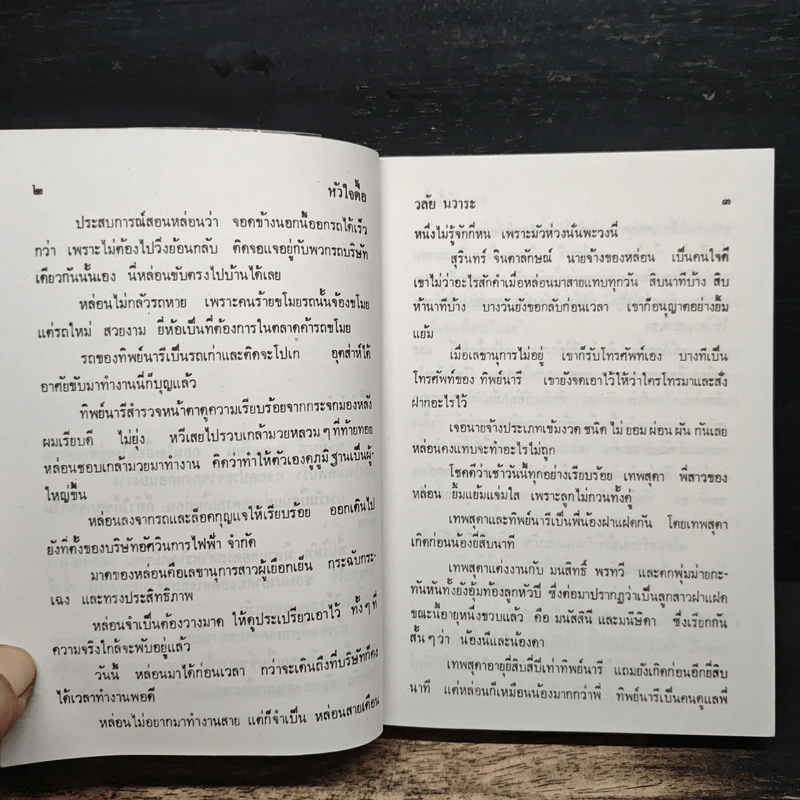 ๒
หัวใจดื้อ
ประสบการณ์สอนหล่อนว่า จอดข้างนอกนี้ออกรถได้เร็ว
กว่า เพราะไม่ต้องไปวิ่งย้อนกลับ ติดจอแจอยู่กับพวกรถบริษัท
เดียวกันนั้นเอง นี่หล่อนขับตรงไปบ้านได้เลย
หล่อนไม่กลัวรถหาย เพราะคนร้ายขโมยรถนั้นจ้องขโมย
แต่รถใหม่ สวยงาม ยี่ห้อเป็นที่ต้องการในตลาดค้ารถขโมย
รถของทิพย์นารีเป็นรถเก่าและติดจะโปเก อุตส่าห์ได้
อาศัยขับมาทำงานนี่ก็บุญแล้ว
ทิพย์นารีสำรวจหน้าตาดูความเรียบร้อยจากกระจกมองหลัง
ผมเรียบดี ไม่ยุ่ง หวีเสยไปรวบเกล้ามวยหลวมๆที่ท้ายทอย
หล่อนชอบเกล้ามวยมาทำงาน คิดว่าทำให้ตัวเองดูภูมิฐานเป็นผู้-
ใหญ่ขึ้น
หล่อนลงจากรถและล็อคกุญแจให้เรียบร้อย ออกเดินไป
ยังที่ตั้งของบริษัทอัศวินการไฟฟ้า จำกัด
มาดของหล่อนคือเลขานุการสาวผู้เยือกเย็น กระฉับกระ-
เฉง และทรงประสิทธิภาพ
หล่อนจำเป็นต้องวางมาด ให้ดูประเปรียวเอาไว้ ทั้งๆที่
ความจริงใกล้จะพับอยู่แล้ว
วันนี้ หล่อนมาได้ก่อนเวลา กว่าจะเดินถึงที่บริษัทก็คง
ได้เวลาทำงานพอดี
หล่อนไม่อยากมาทำงานสาย แต่ก็จำเป็น หล่อนสายเดือน
วลัย นวาระ
๓
หนึ่งไม่รู้จักกี่หน เพราะมัวห่วงนั่นพะวงนี่
สุรินทร์ จินดาลักษณ์ นายจ้างของหล่อน เป็นคนใจดี
เขาไม่ว่าอะไรสักคำเมื่อหล่อนมาสายแทบทุกวัน สิบนาทีบ้าง สิบ
ห้านาทีบ้าง บางวันยังขอกลับก่อนเวลา เขาก็อนุญาตอย่างยิ้ม
แย้ม
เมื่อเลขานุการไม่อยู่ เขาก็รับโทรศัพท์เอง บางทีเป็น
โทรศัพท์ของ ทิพย์นารี เขายังจดเอาไว้ให้ว่าใครโทรมาและสั่ง
ฝากอะไรไว้
เจอนายจ้างประเภทเข้มงวด ชนิด ไม่ ยอม ผ่อน ผัน กันเลย
หล่อนคงแทบจะทำอะไรไม่ถูก
โชคดีว่าเช้าวันนี้ทุกอย่างเรียบร้อย เทพสุดา พี่สาวของ
หล่อน ยิ้มแย้มแจ่มใส เพราะลูกไม่กวนทั้งคู่
เทพสุดาและทิพย์นารีเป็นพี่น้องฝาแฝดกัน โดยเทพสุดา
เกิดก่อนน้องยี่สิบนาที
เทพสุดาแต่งงานกับ มนสิทธิ์ พรทวี และตกพุ่มม่ายกะ-
ทันหันทั้งยังอุ้มท้องลูกหัวปี ซึ่งต่อมาปรากฏว่าเป็นลูกสาวฝาแฝด
ขณะนี้อายุหนึ่งขวบแล้ว คือ มนัสสินี และมนีษิดา ซึ่งเรียกกัน
สั้นๆว่า น้องนีและน้องดา
เทพสุดาอายุยี่สิบสี่ปีเท่าทิพย์นารี แถมยังเกิดก่อนอีกยี่สิบ
นาที แต่หล่อนก็เหมือนน้องมากกว่าพี่ ทิพย์นารีเป็นคนดูแลพี่